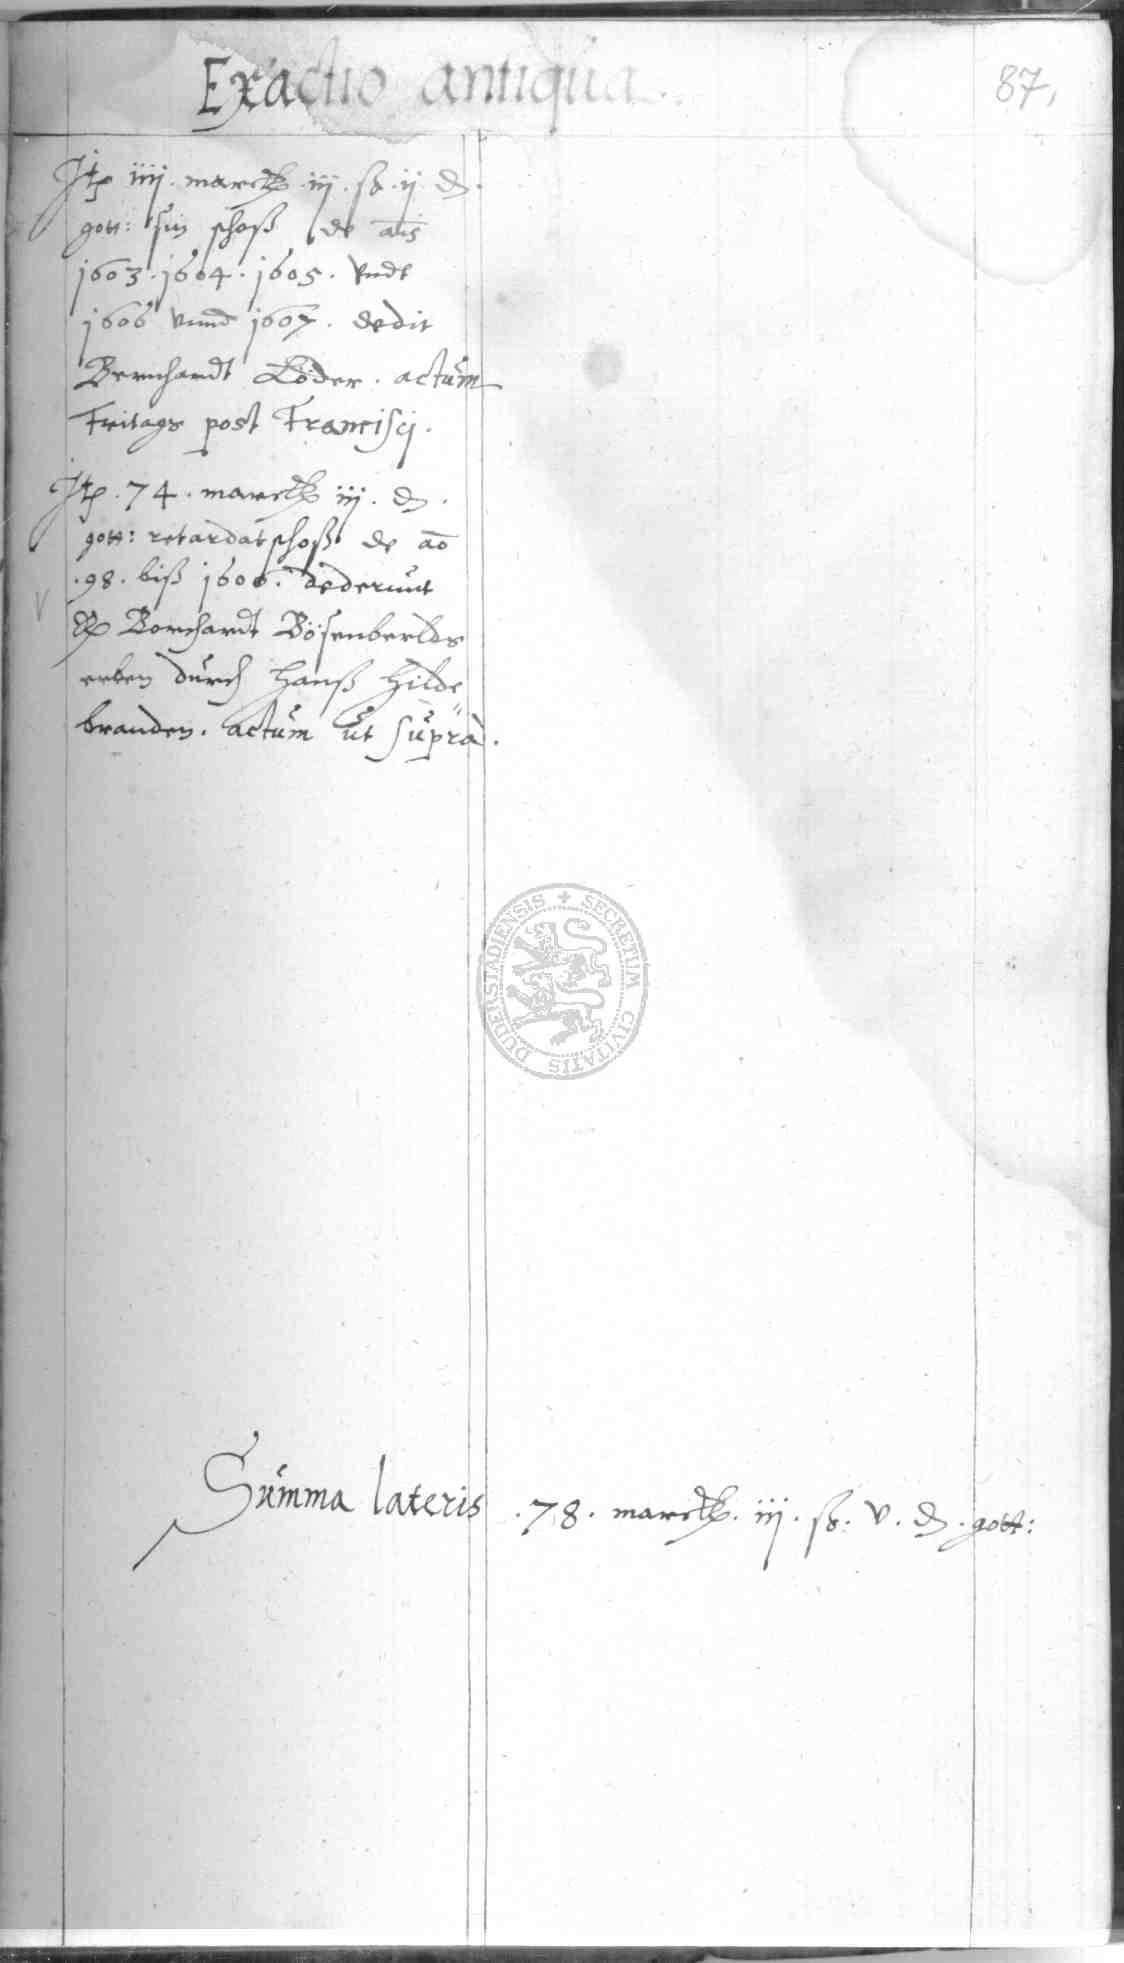 Exactio antiqua.
87.
Itē iiij. marck. iij. ß. ij. ₰.
gott: sin schoß de aīs
1603. 1604. 1605. vndt
1606 vnnd 1607. dedit
Bernhardt Löder. actum
Freitags post Francisci.
Itē. 74. marck iij. ₰.
gott: retardatschoß de aō
.98. biß 1606. dederunt
Borchardt Bösenberlds
erben durch Hanß Hilde
branden. actum ut supra.
SECRETUM CIVITATIS DUDERSTADIENSIS
Summa lateris .78. marck. iij. ß: v. ₰. gott: